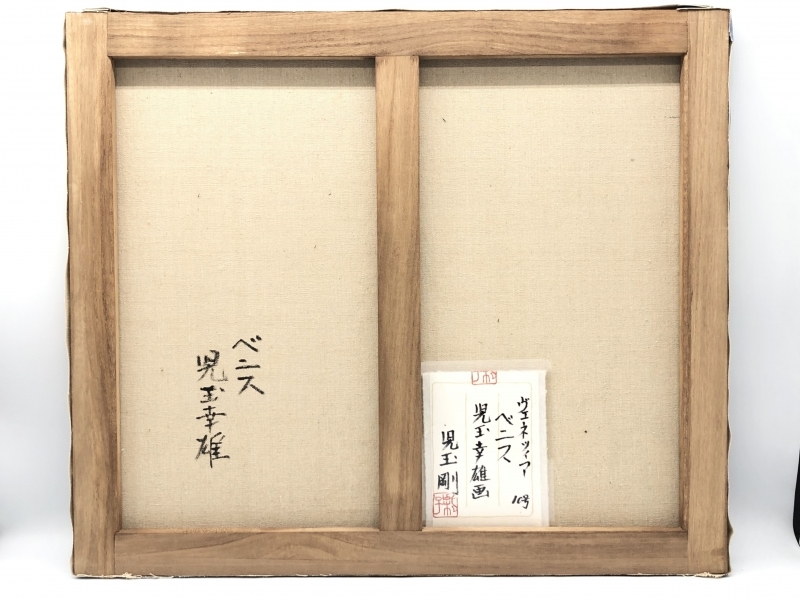 ベニス
児玉幸雄
ヴェネツィア
ベニス 10号
児玉幸雄画
児玉剛